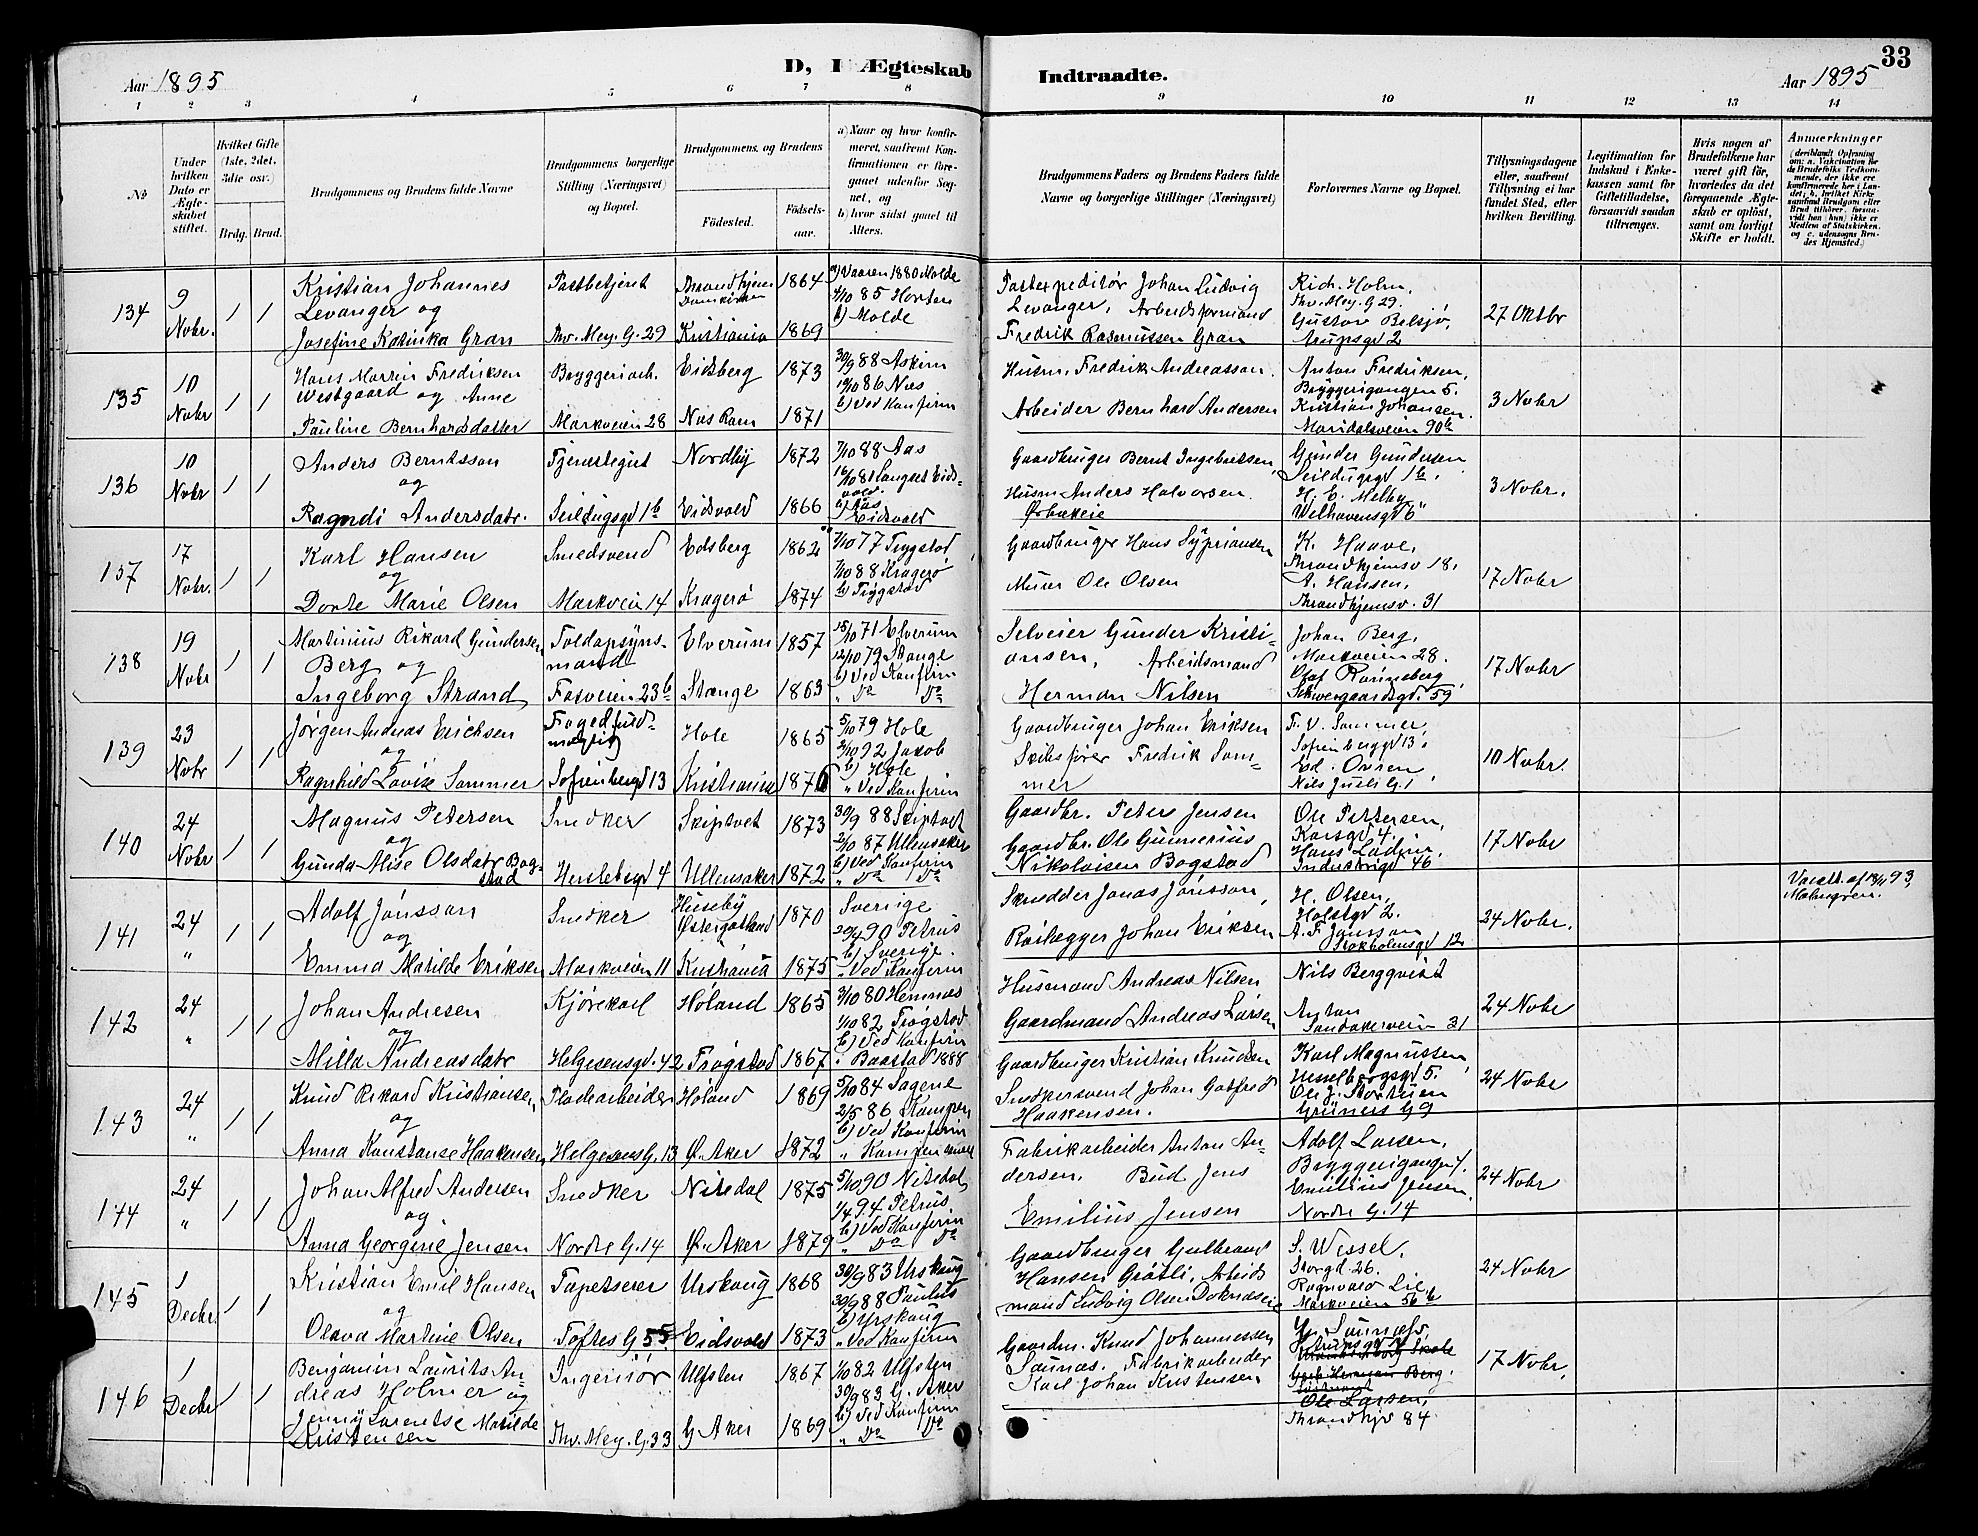 33
Aar 1895
D, I Ægteskab Indtraadte.
Aar 1895
1 2 3 4 5 6 7 8 9 10 11 12 13 14
№
Under hvilken Dato er Ægteskabet stiftet.
Hvilket Gifte (1ste, 2det, 3die osv.)
Brdg. Brud.
Brudgommens og Brudens fulde Navne
Brudgommens borgerlige Stilling (Næringsvei) og Bopæl.
Brudgommens og Brudens
Fødested.
Fødselsaar.
a) Naar og hvor konfirmeret, saafremt Konfirmationen er foregaaet udenfor Sognet, og
b) hvor sidst gaaet til Alters.
Brudgommens Faders og Brudens Faders fulde Navne og borgerlige Stillinger (Næringsvei)
Forlovernes Navne og Bopæl.
Tillysningsdagene eller, saafremt Tillysning ei har fundet Sted, efter hvilken Bevilling.
Legitimation for Indskud i Enkekassen samt for Giftetilladelse, forsaavidt saadan tiltrænges.
Hvis nogen af Brudefolkene har været gift før, hvorledes da det foregaaende Ægteskab er opløst, samt om lovligt Skifte er holdt.
Anmærkninger
134 9 Novbr. 1 1
Kristian Johannes
Levanger og
Josefine Katinka Gran
Postbetjent
Thv. Mey. G. 29
Throndhjem Domkirken 1864
Kristiania 1869
a) Vaaren 1880 Molde
85 Horten
b) Molde
Postexpeditør Johan Ludvig
Levanger, Arbeidsformand
Fredrik Rasmussen Gran
Rich. Holm,
Thv. Mey. G 29.
Gustav Belsjø,
Arupsgd 2
27 Oktbr
135 10 Novbr 1 1
Hans Martin Fredriksen
Westgaard og Anne
Pauline Bernhardsdatter
Bryggeriarb.
Markveien 28
Eidsberg 1873
Næs Rom 1871
30/9 88 Askim
10/10 86 Næs
b) Ved Konfirm
Husm. Fredrik Andreassen.
Arbeider Bernhard Andersen
Anton Fredriksen,
Bryggerigangen 5.
Kristian Johansen.
Maridalsveien 90b
3 Novbr
136 10 Novbr 1 1
Anders Berntsson
og
Ragndi Andersdatr.
Tjenestegut
Seildugsgd 1b
Nordby 1872
Eidsvold 1866
7/10 88 Aas
16/10 81 Langset Eidsvold.
b) Aas
Eidsvold
Gaardbruger Bernt Ingebretsen,
Husm Anders Halvorsen.
Gunder Gundersen
Seildugsgd 1b.
H. E. Melby
Welhavensgd 6
3 Novbr.
137 17 Novbr. 1 1
Karl Hansen
og
Dorte Marie Olsen
Smedsvend
Markveien 14
Edsberg 1862
Kragerø 1874
7/10 77 Trygstad
7/10 88 Kragerø
b) Trygstad
Gaardbruger Hans Sypriansen
Murer Ole Olsen
K. Haave,
Throndhjemsv 18.
A. Hansen,
Throndhjemsv. 31
17 Novbr
138 19 Novbr 1 1
Martinius Rikard Gundersen
Berg og
Ingeborg Strand
Toldopsynsmand
Fosveien 23b
Elverum 1857
Stange 1863
15/10 71 Elverum
12/10 79 Stange
b) Ved Konfirm
" Do Do
Selveier Gunder Kristiansen, Arbeidsmand
Herman Nilsen
Johan Berg,
Markveien 28.
Olaf Rønneberg
Schweigaardsgd. 59
17 Novbr
139 23 Novbr 1 1
Jørgen Andreas Erichsen
og
Ragnhild Lovise Sommer
Fogedfuldmægtig
Sofienbergd 13
Hole 1865
Kristiania 1876
5/10 79 Hole
2/10 92 Jakob
b) Hole
" Ved Konfirm
Gaardbruger Johan Eriksen
Skibsfører Fredrik Sommer
F. V. Sommer,
Sofienberggd 13.
Nils Juels G. 1
10 Novbr.
140 24 Novbr 1 1
Magnus Petersen
og
Gunda Alise Olsdatr Bogstad
Snedker
Herslebsgd 4
Skiptvet 1873
Ullensaker 1872
30/9 88 Skiptvet
2/10 87 Ullensaker
b) Ved Konfirm
" Do Do
Gaardbr. Peter Jensen
Gaardbr. Ole Gunnerius
Nikolaisen Bogstad
Ole Pettersen,
Korsgd 4.
Industrigd 46
17 Novbr
141 24 " 1 1
Adolf Jonsson
og
Emma Matilde Eriksen
Snedker
Markveien 11
Husebÿ Østergøtland 1870
Kristiania 1875
Sverige
20/4 90 Petrus
b) Sverige.
" Ved Konfirm
Skrædder Jonas Jonsson,
Rørlægger Johan Eriksen
H. Olsen,
Holstgd 2.
A. F. Jonsson
Stokholmsgd 12
24 Novbr.
Malmgren.
142 24 " 1 1
Johan Andresen
og
Milla Andreasdatr
Kjørekarl
Helgesensgd. 42
Høland 1865
Trøgstad 1867
3/10 80 Hemnæs
1/10 82 Trøgstad
b) Ved Konfirm
" Baastad 1888
Husmand Andreas Nilsen
Gaardmand Andreas Larsen
Nils Bergqvist
Anton
Sandakerveien 31
24 Novbr
143 24 " 1 1
Knud Rikard Kristiansen,
og
Anna Konstanse Haakensen,
Pladearbeider
Helgesens G. 13
Høland 1869
Ø. Aker 1872
5/10 84 Sagene
2/5 86 Kampen
b) Ved Konfirm
" Kampen
Gaardbruger Kristian Knudsen
Snedkersvend Johan Gotfred
Haakensen.
Karl Magnussen,
Hesselbergsgd 5.
Grüners G 9
24 Novbr
144 24 " 1 1
Johan Alfred Andersen
og
Anna Georgine Jensen
Snedker
Nordre G. 14
Nitedal 1875
Ø. Aker 1879
5/10 90 Nitedal,
1/4 94 Petrus.
b) Ved Konfirm
" Do Do
Fabrikarbeider Anton Andersen. Bud Jens
Emilius Jensen
Adolf Larsen,
Bryggerigangen 7.
Emilius Jensen,
Nordre G. 14
24 Novbr
145 1 Decbr. 1 1
Kristian Emil Hansen
og
Olava Martine Olsen
Tapetserer
Toftes G 55
Urskoug 1868
Eidsvold 1873
30/9 83 Urskoug
30/9 88 Paulus
b) Urskoug
" Ved Konfirm
Gaardbruger Gulbrand
Hansen Grøtli, Arbeidsmand Ludvig Olsen
S. Wessel,
Storgd 26.
Ragnvald Lie
Markveien 56b
24 Novbr
146 1 Decbr 1 1
Benjamin Laurits Andreas Holmer og
Jenny Lorentse Matilde
Kristensen
Ingeniør
Thv. Mey. G. 33
Ulfsten 1867
G. Aker 1869
1/10 82 Ulfsten
30/9 83 G. Aker
b) Ved Konfirm
" Do Do
Gaardm. Knud Johannessen
Saunæs. Fabrikarbeider
Karl Johan Kristensen
Ole Larsen,
Throndhjv 84
17 Novbr,